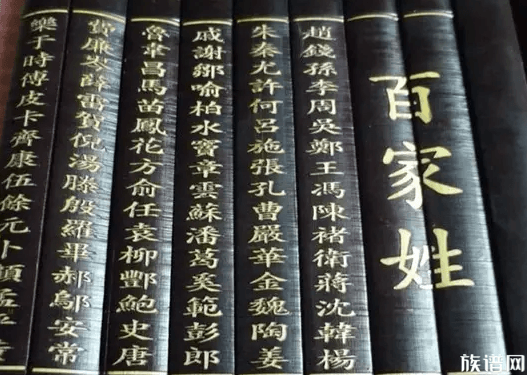 百家姓
趙錢孫李周吳鄭王馮陳褚衛蔣沈韓楊
朱秦尤許何呂施張孔曹嚴華金魏陶姜
戚謝鄒喻柏水竇章雲蘇潘葛奚範彭郎
魯韋昌馬苗鳳花方俞任袁柳酆鮑史唐
費廉岑薛雷賀倪湯滕殷羅畢郝鄔安常
樂于時傅皮卡齊康伍餘元卜
族谱网